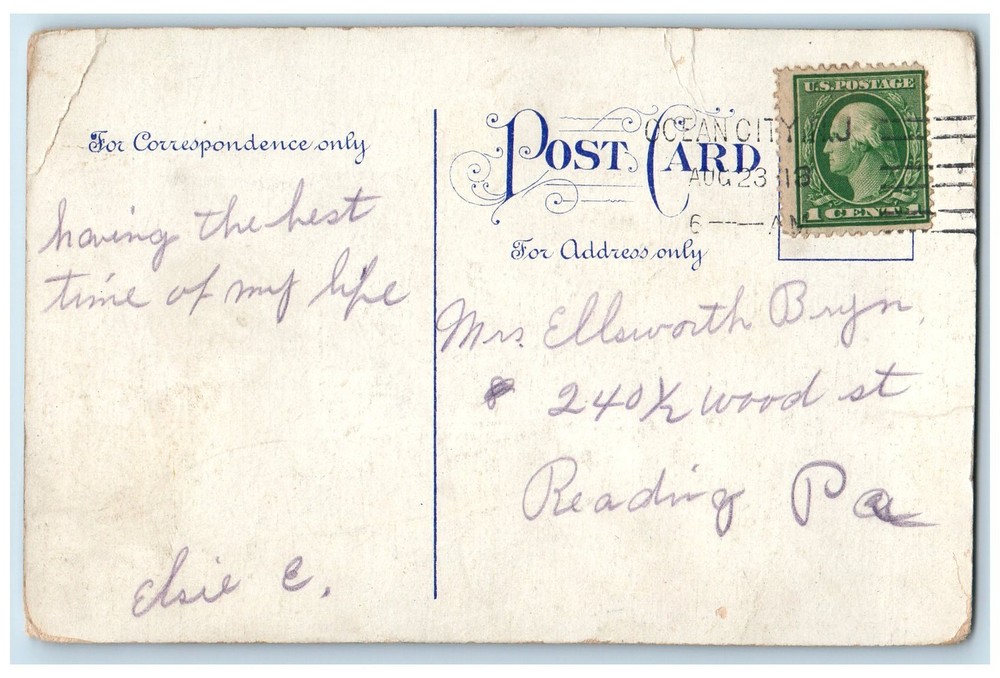 For Correspondence only
having the best
time of my life
Elsie C.
POST CARD
For Address only
OCEAN CITY N.J.
AUG 23 13
6 — AM
U.S. POSTAGE
1 CENT 1
Mrs. Ellsworth Bryn,
240 1/2 wood st
Reading Pa